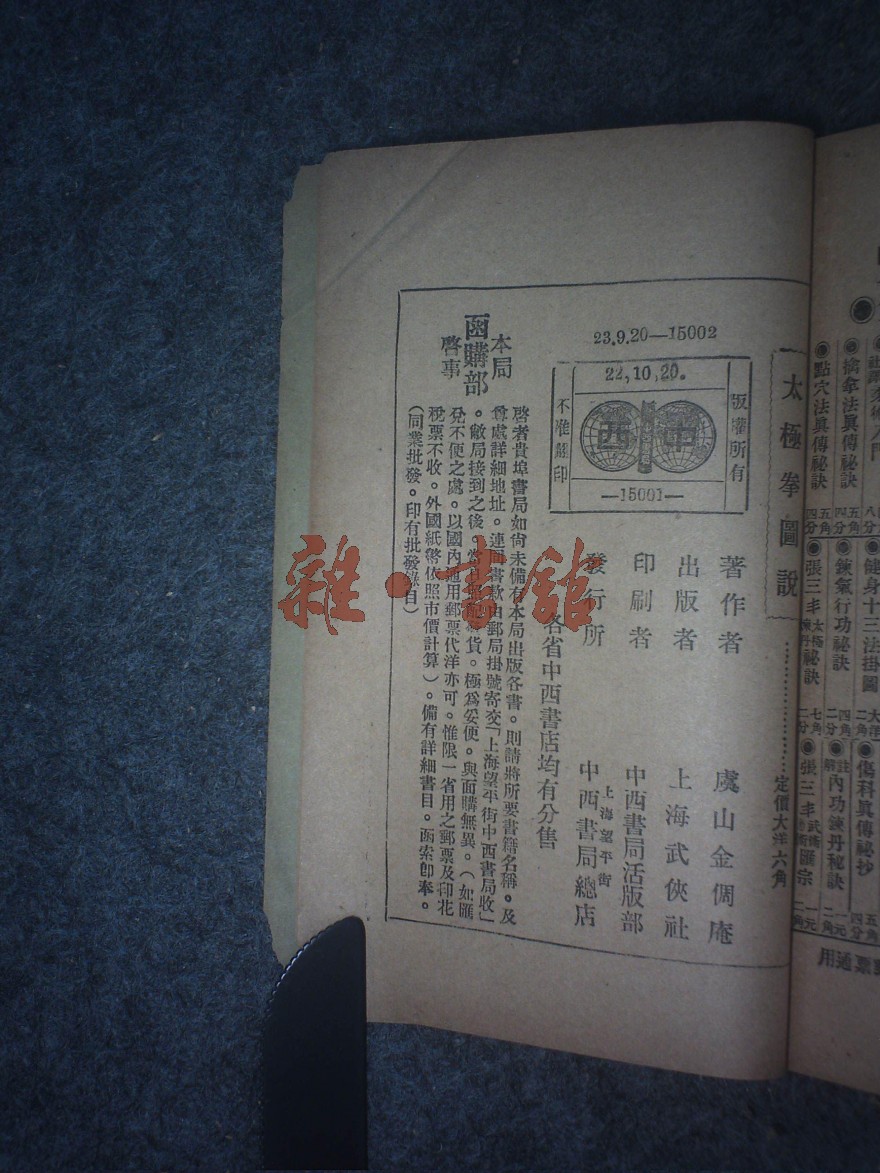 太極拳圖說
定價大洋六角
23.9.20—15002
22,10,20.
版權所有
中西
不准翻印
—15001—
著作者 虞山金倜庵
出版者 上海武俠社
印刷者 中西書局活版部
發行所 上海望平街 中西書局總店
各省中西書店均有分售
本局
函購部
啓事
啓者貴埠書局如尙未備有本局出版各書。則請將所要書籍名稱。及
尊處詳細地址。連同書款由郵局掛號寄交「上海望平街中西書局收」
。敝局接到之後。當貨。極爲妥便。與面購無異。(如匯
兌不便之處。以國內通用郵票代洋亦可。惟限一省用之郵票及印花
稅票不收。外國紙幣依照市價計算)。備有詳細書目。函索卽奉。
(同業批發。印有批發目)
雜·書館
擒拿法眞傳祕訣
點穴法眞傳祕訣
健身十三法掛圖
鍊氣行功祕訣
張三丰太極鍊丹祕訣
傷科眞傳祕抄
註解內功鍊丹秘訣
張三丰武術匯宗
票通用